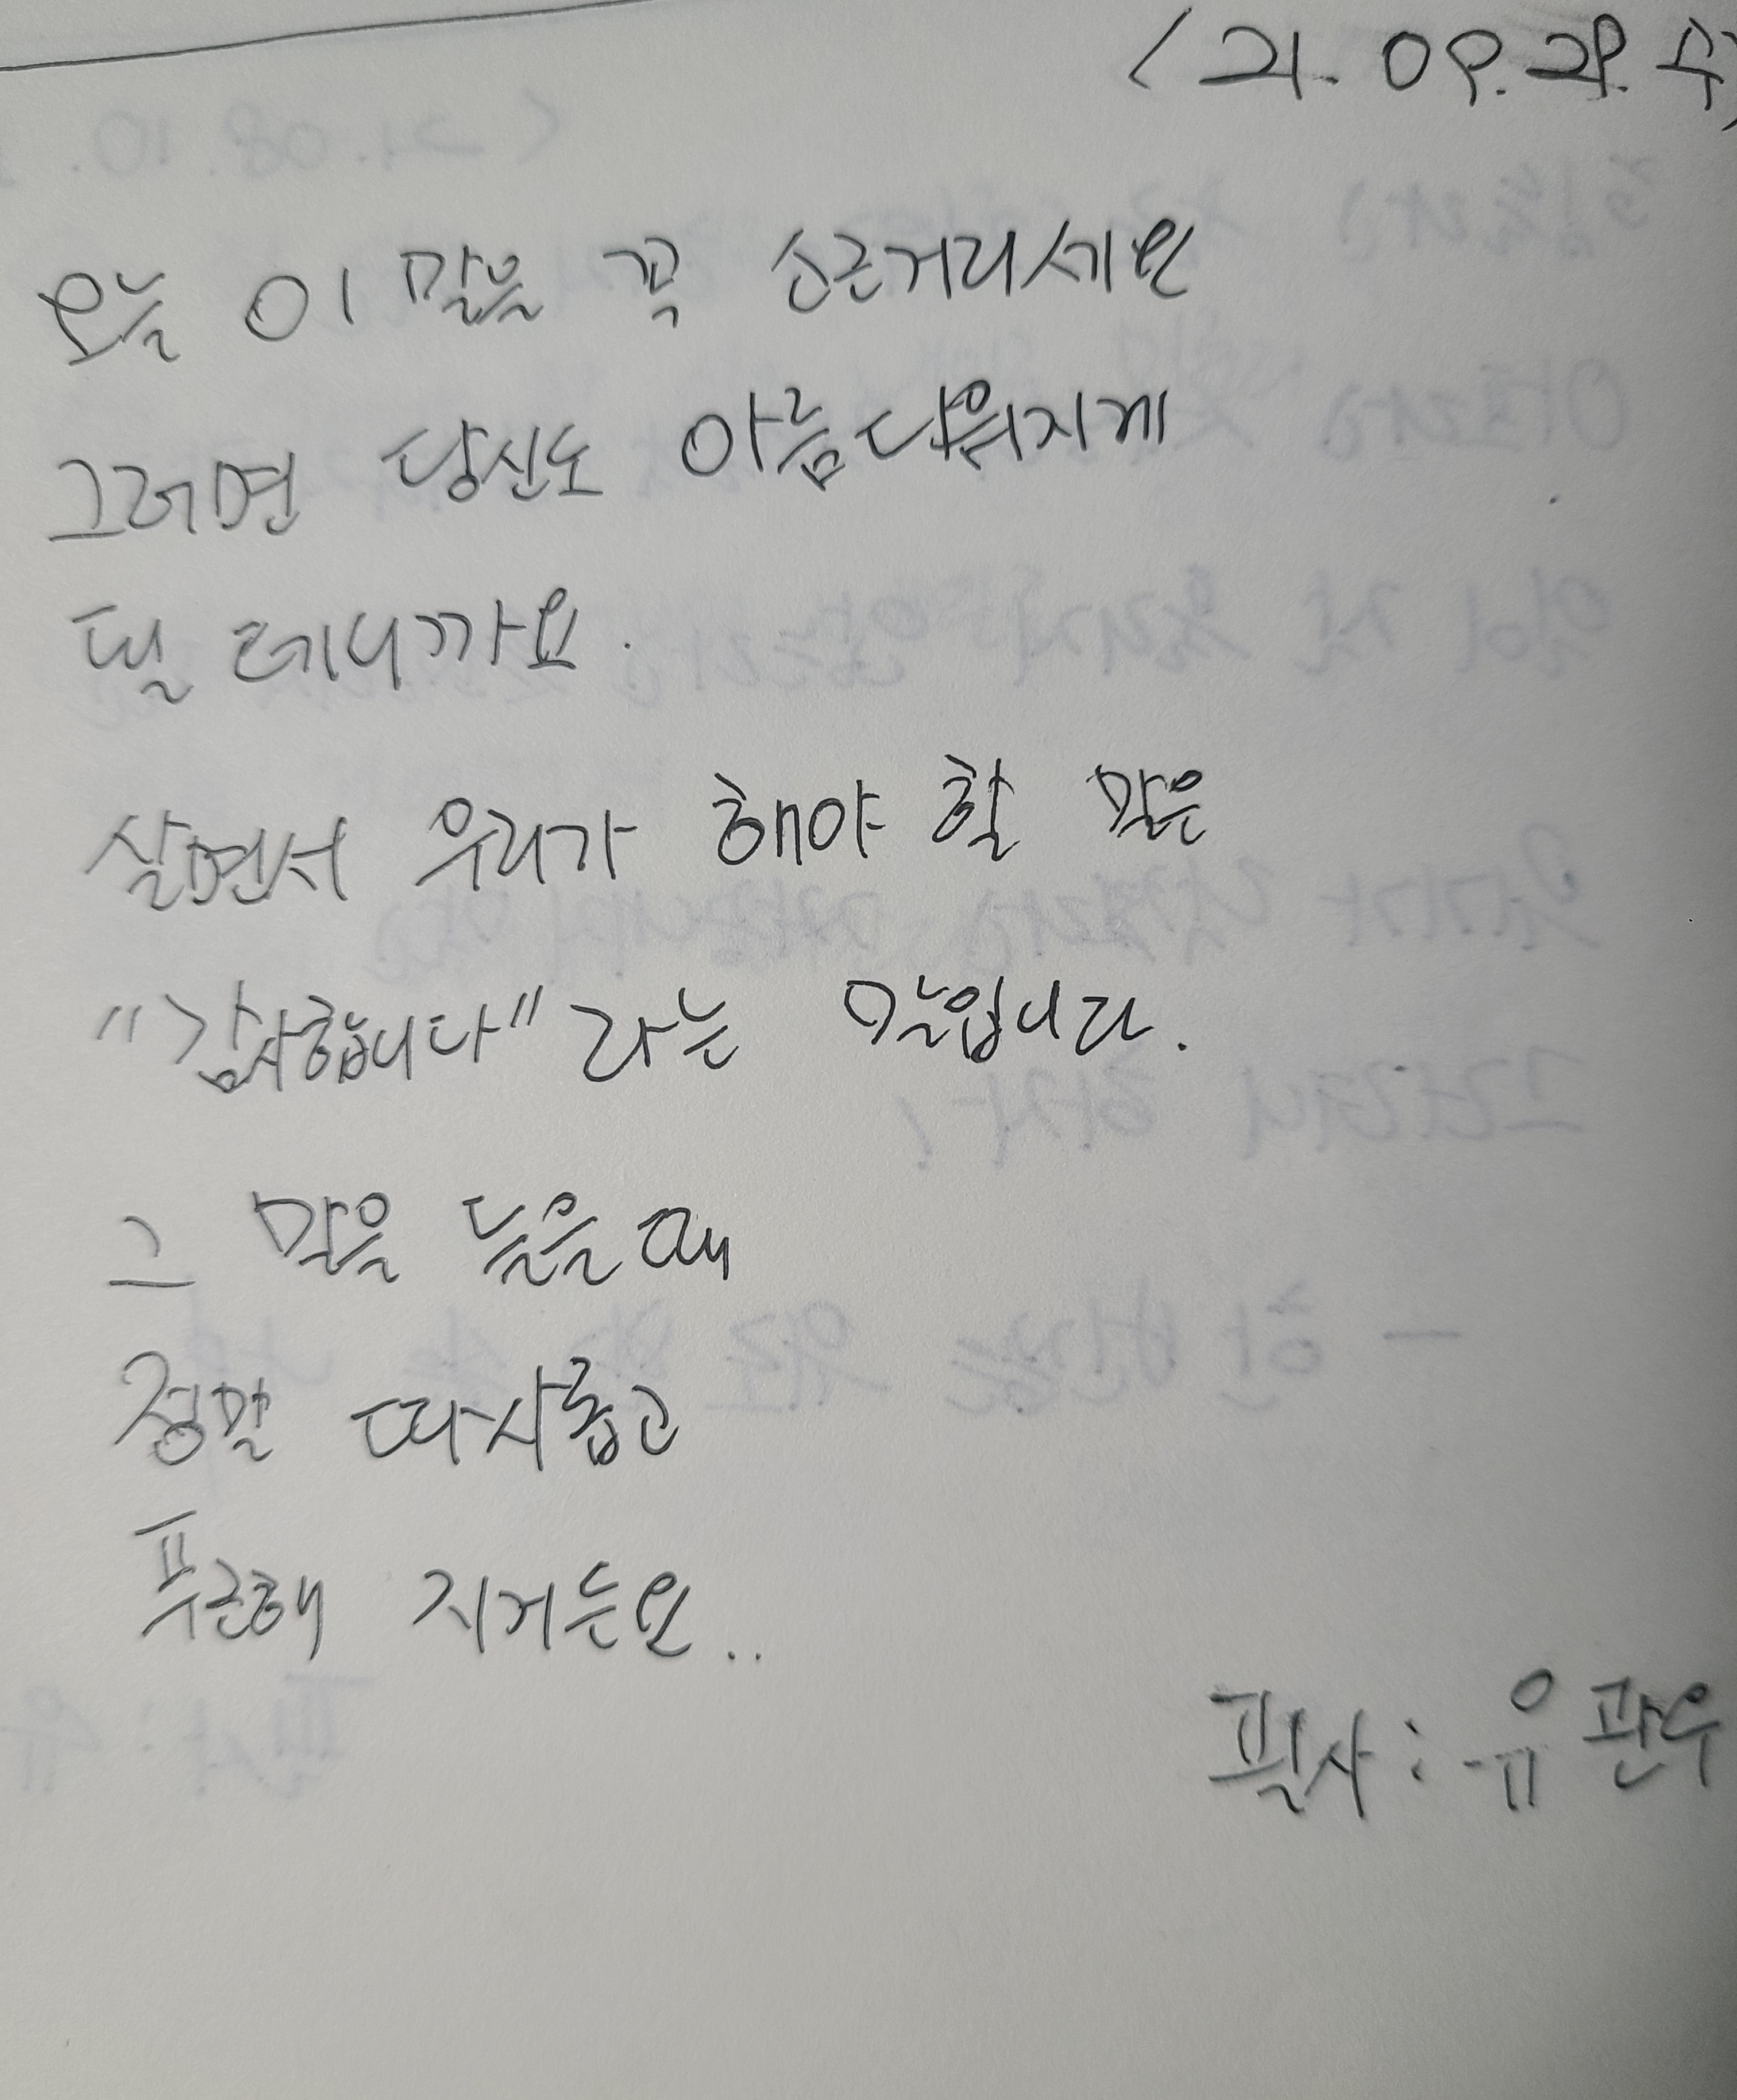 <21.09.29.수>
오늘 이 말을 꼭 소근거리세요
그러면 당신도 아름다워지게
될 테니까요.
살면서 우리가 해야 할 말은
"감사합니다"라는 말입니다.
그 말을 들을때
정말 따사롭고
푸근해 지거든요..
필사 : 유관우